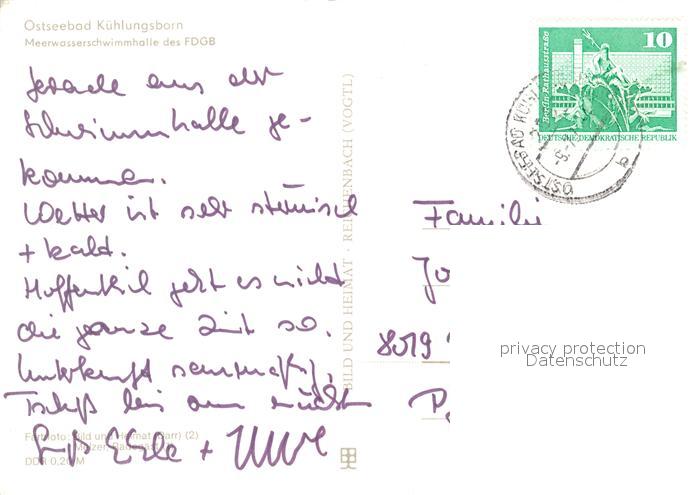 Ostseebad Kühlungsborn
Meerwasserschwimmhalle des FDGB
Gerade aus der
Schwimmhalle ge-
kommen.
Wetter ist sehr stürmisch
+ kalt.
Hoffentlich geht es nicht
die ganze Zeit so.
Unterkunft
Tschüß bis
+ Uwe
Farbfoto: Bild und Heimat (Darr) (2)
DDR 0,20 M
BILD UND HEIMAT · REICHENBACH (VOGTL)
10
Berlin · Rathausstraße
DEUTSCHE DEMOKRATISCHE REPUBLIK
OSTSEEBAD KÜHL
b
Famili
Jo
8019
P
privacy protection
Datenschutz